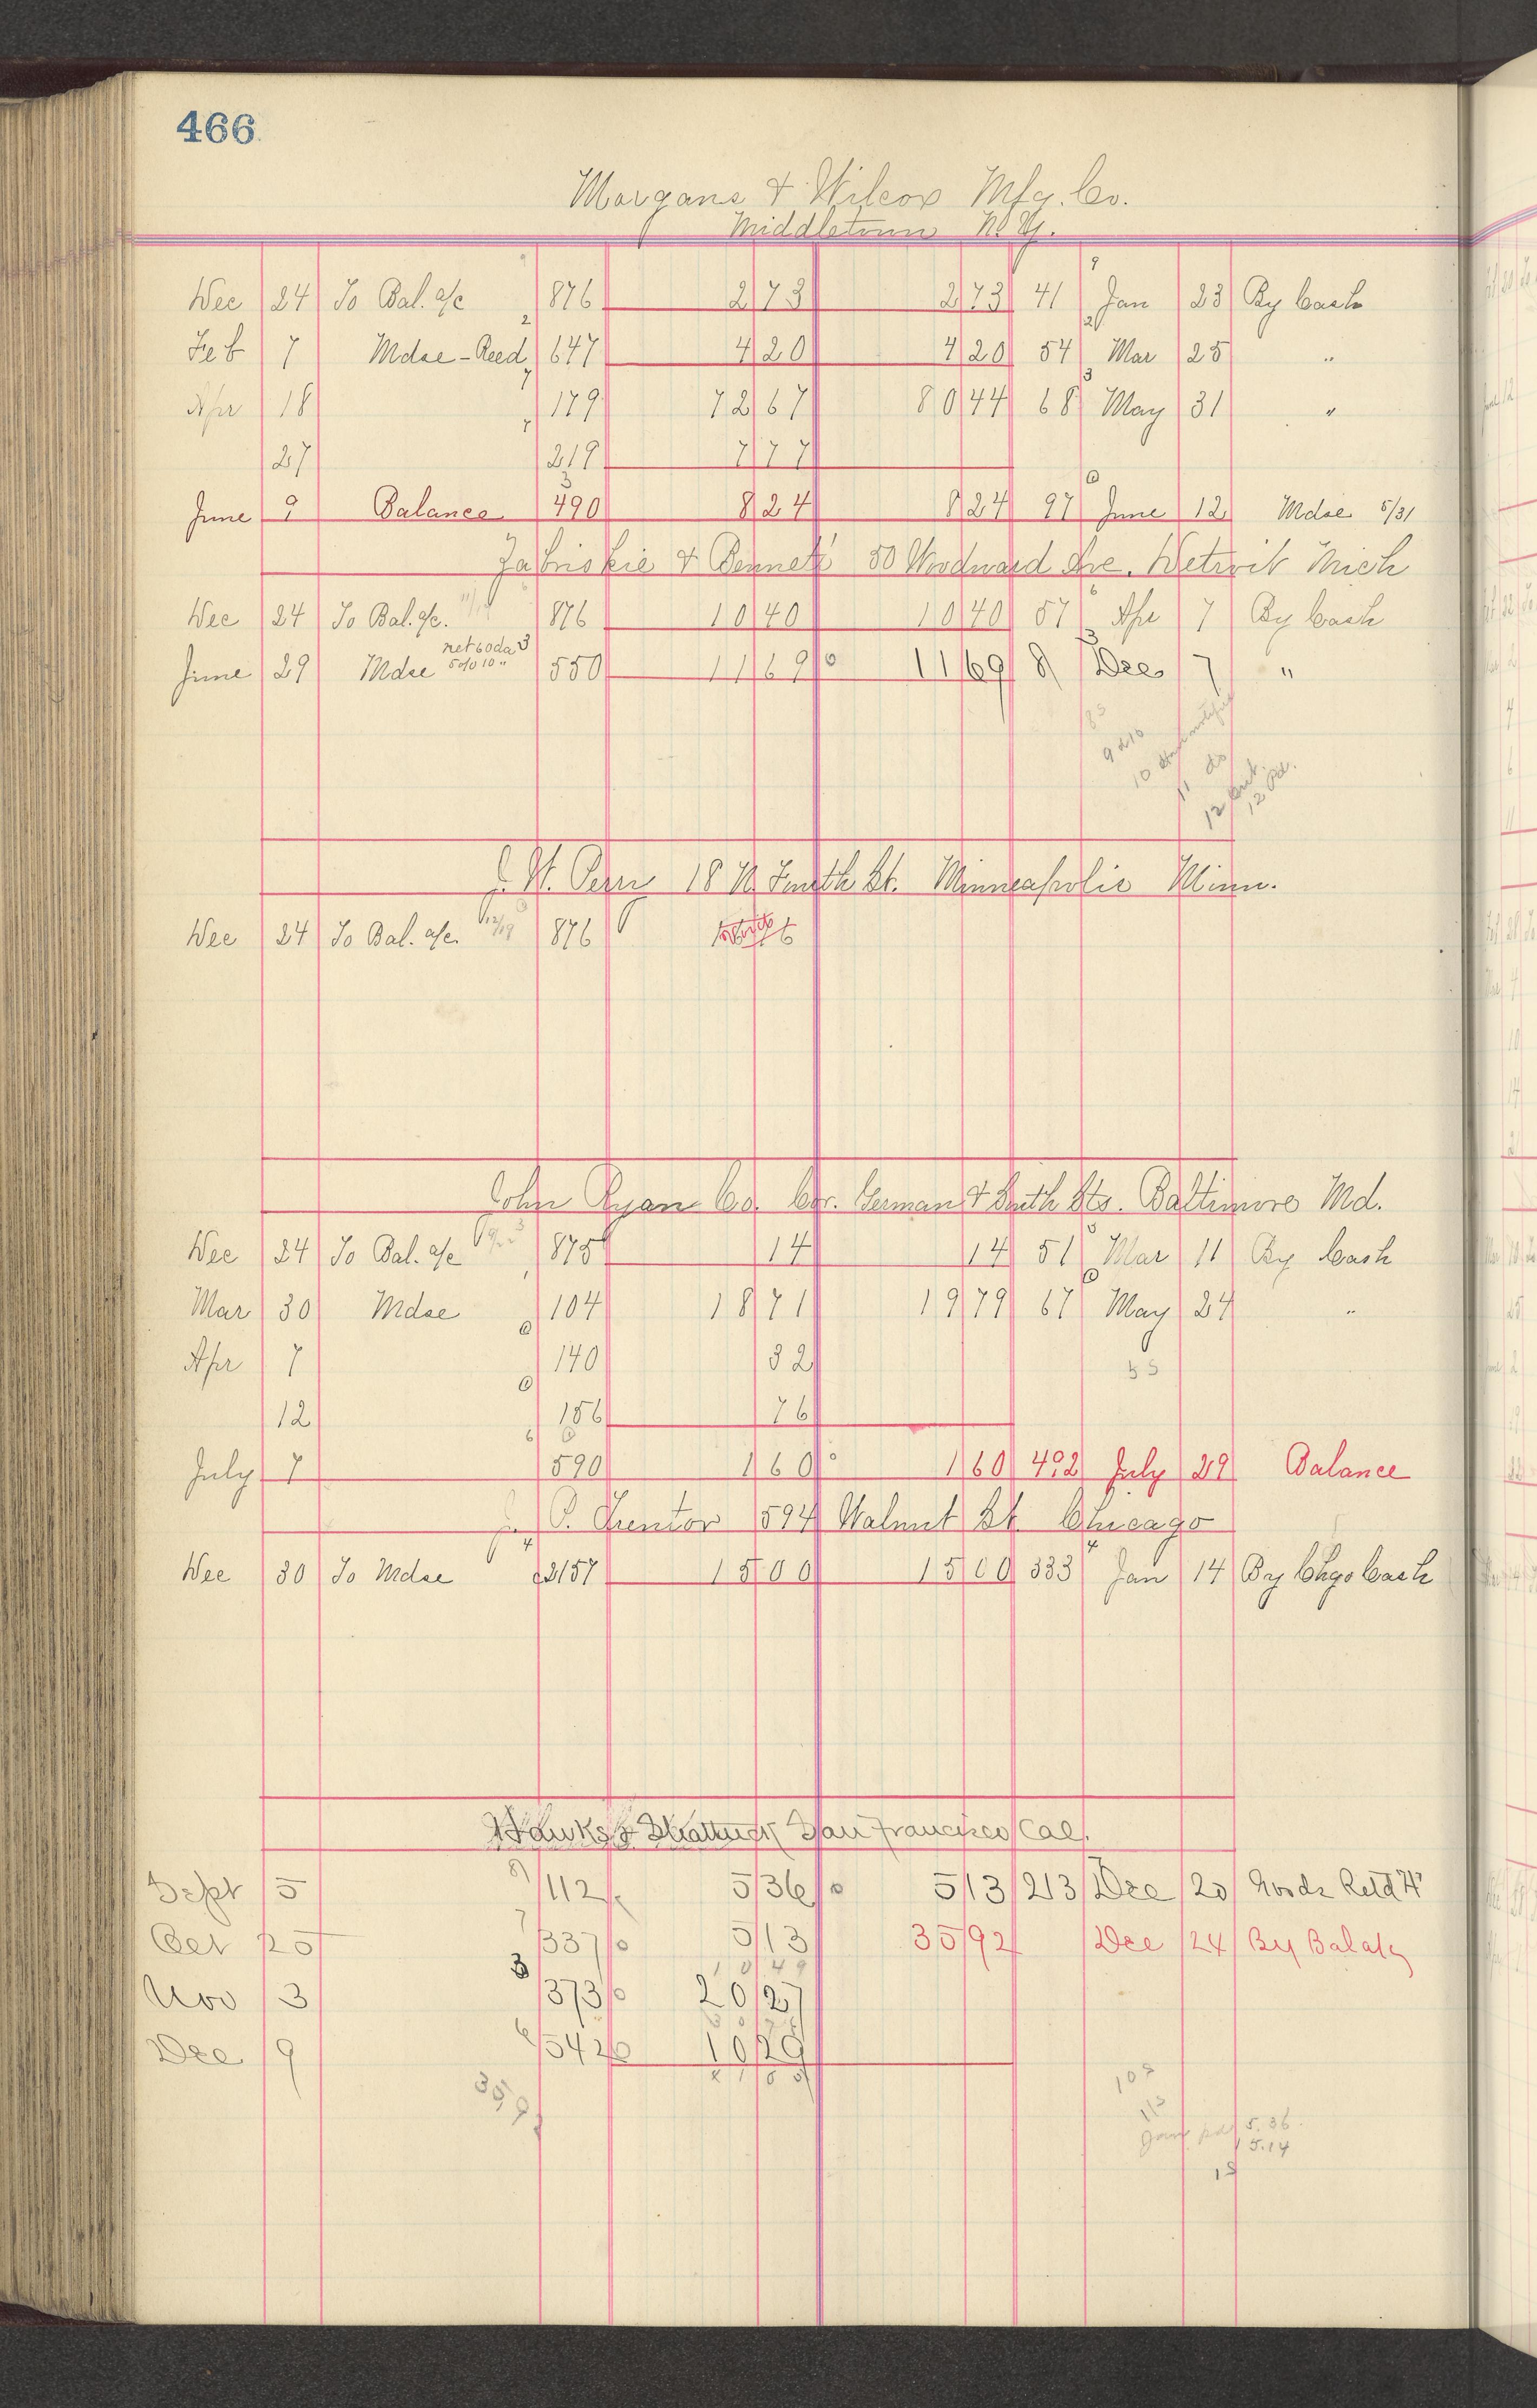 466
Morgans & Wilcox Mfg. Co.
Middletown N.Y.
Dec 24 To Bal. a/c 876 2 73 2 73 41 Jan 23 By Cash
Feb 7 Mdse - Reed 647 4 20 4 20 54 Mar 25 "
Apr 18 179 72 67 80 44 68 May 31 "
27 219 7 77
June 9 Balance 490 8 24 8 24 97 June 12 Mdse 5/31
Zabriskie & Bennett 50 Woodward Ave. Detroit Mich
Dec 24 To Bal. a/c. 876 10 40 10 40 57 Apr 7 By Cash
net 60 da
June 29 Mdse 5% 10 " 550 11 69 11 69 8 Dec 7 "
J. W. Perry 18 N. Fourth St. Minneapolis Minn.
Dec 24 To Bal. a/c. 12/19 876
John Ryan Co. Cor. German & South Sts. Baltimore Md.
Dec 24 To Bal. a/c 875 14 14 51 Mar 11 By Cash
Mar 30 Mdse 104 18 71 19 79 67 May 24 "
Apr 7 140 32
12 156 76
July 7 590 1 60 1 60 402 July 29 Balance
P. Trentor 594 Walnut St. Chicago
Dec 30 To Mdse 157 15 00 15 00 333 Jan 14 By Chgo Cash
Hawks & Shattuck San Francisco Cal.
Sept 5 112 5 36 5 13 213 Dec 20 Goods Retd
Oct 25 337 5 13 35 92 Dec 24 By Bal a/c
10 49
Nov 3 373 20 27
Dec 9 542 10 29
359
10 s
11 s
pd 5.36
5.14